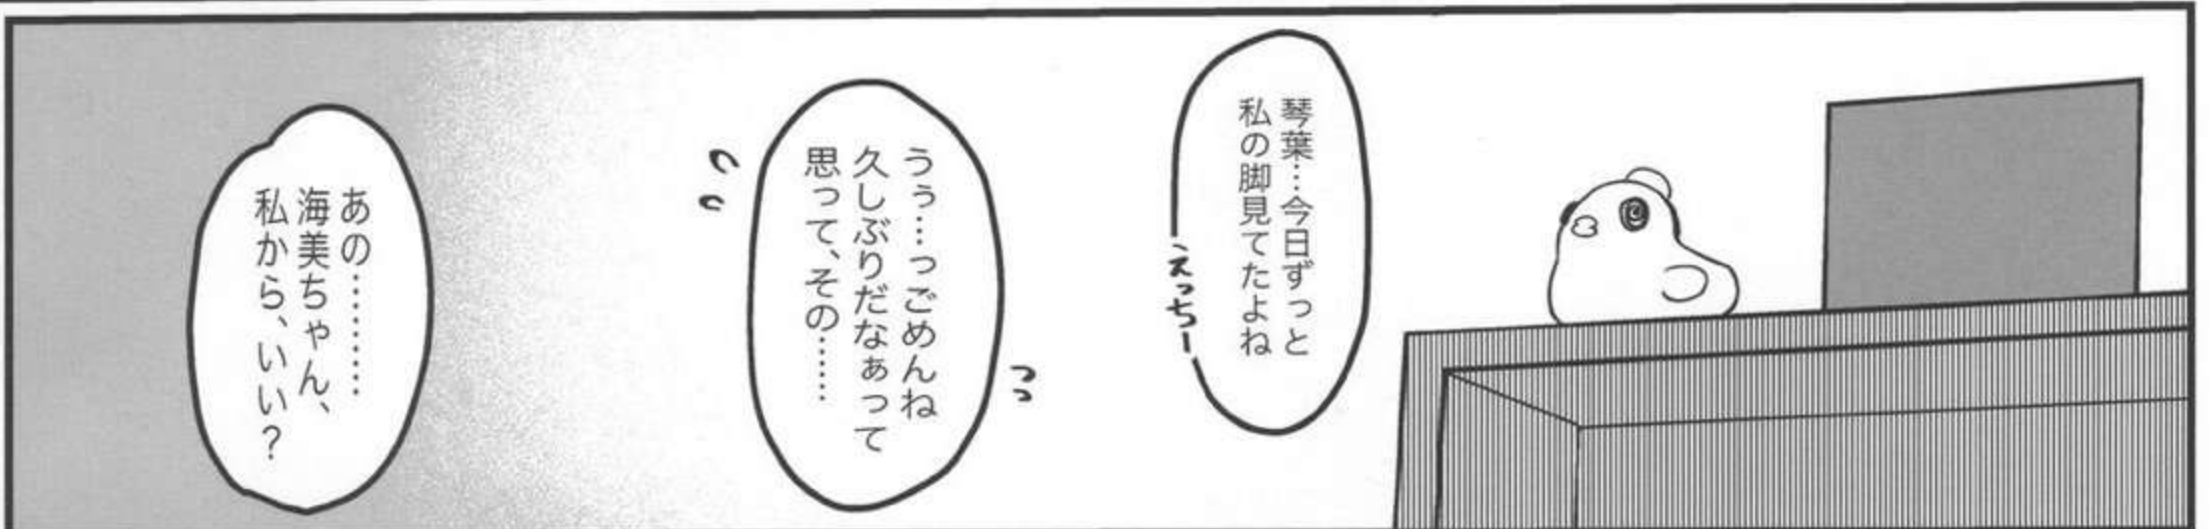 琴葉…今日ずっと
私の脚見てたよね
えっちー
うぅ…っごめんね
久しぶりだなぁって
思って、その……
あの…………
海美ちゃん、
私から、いい？